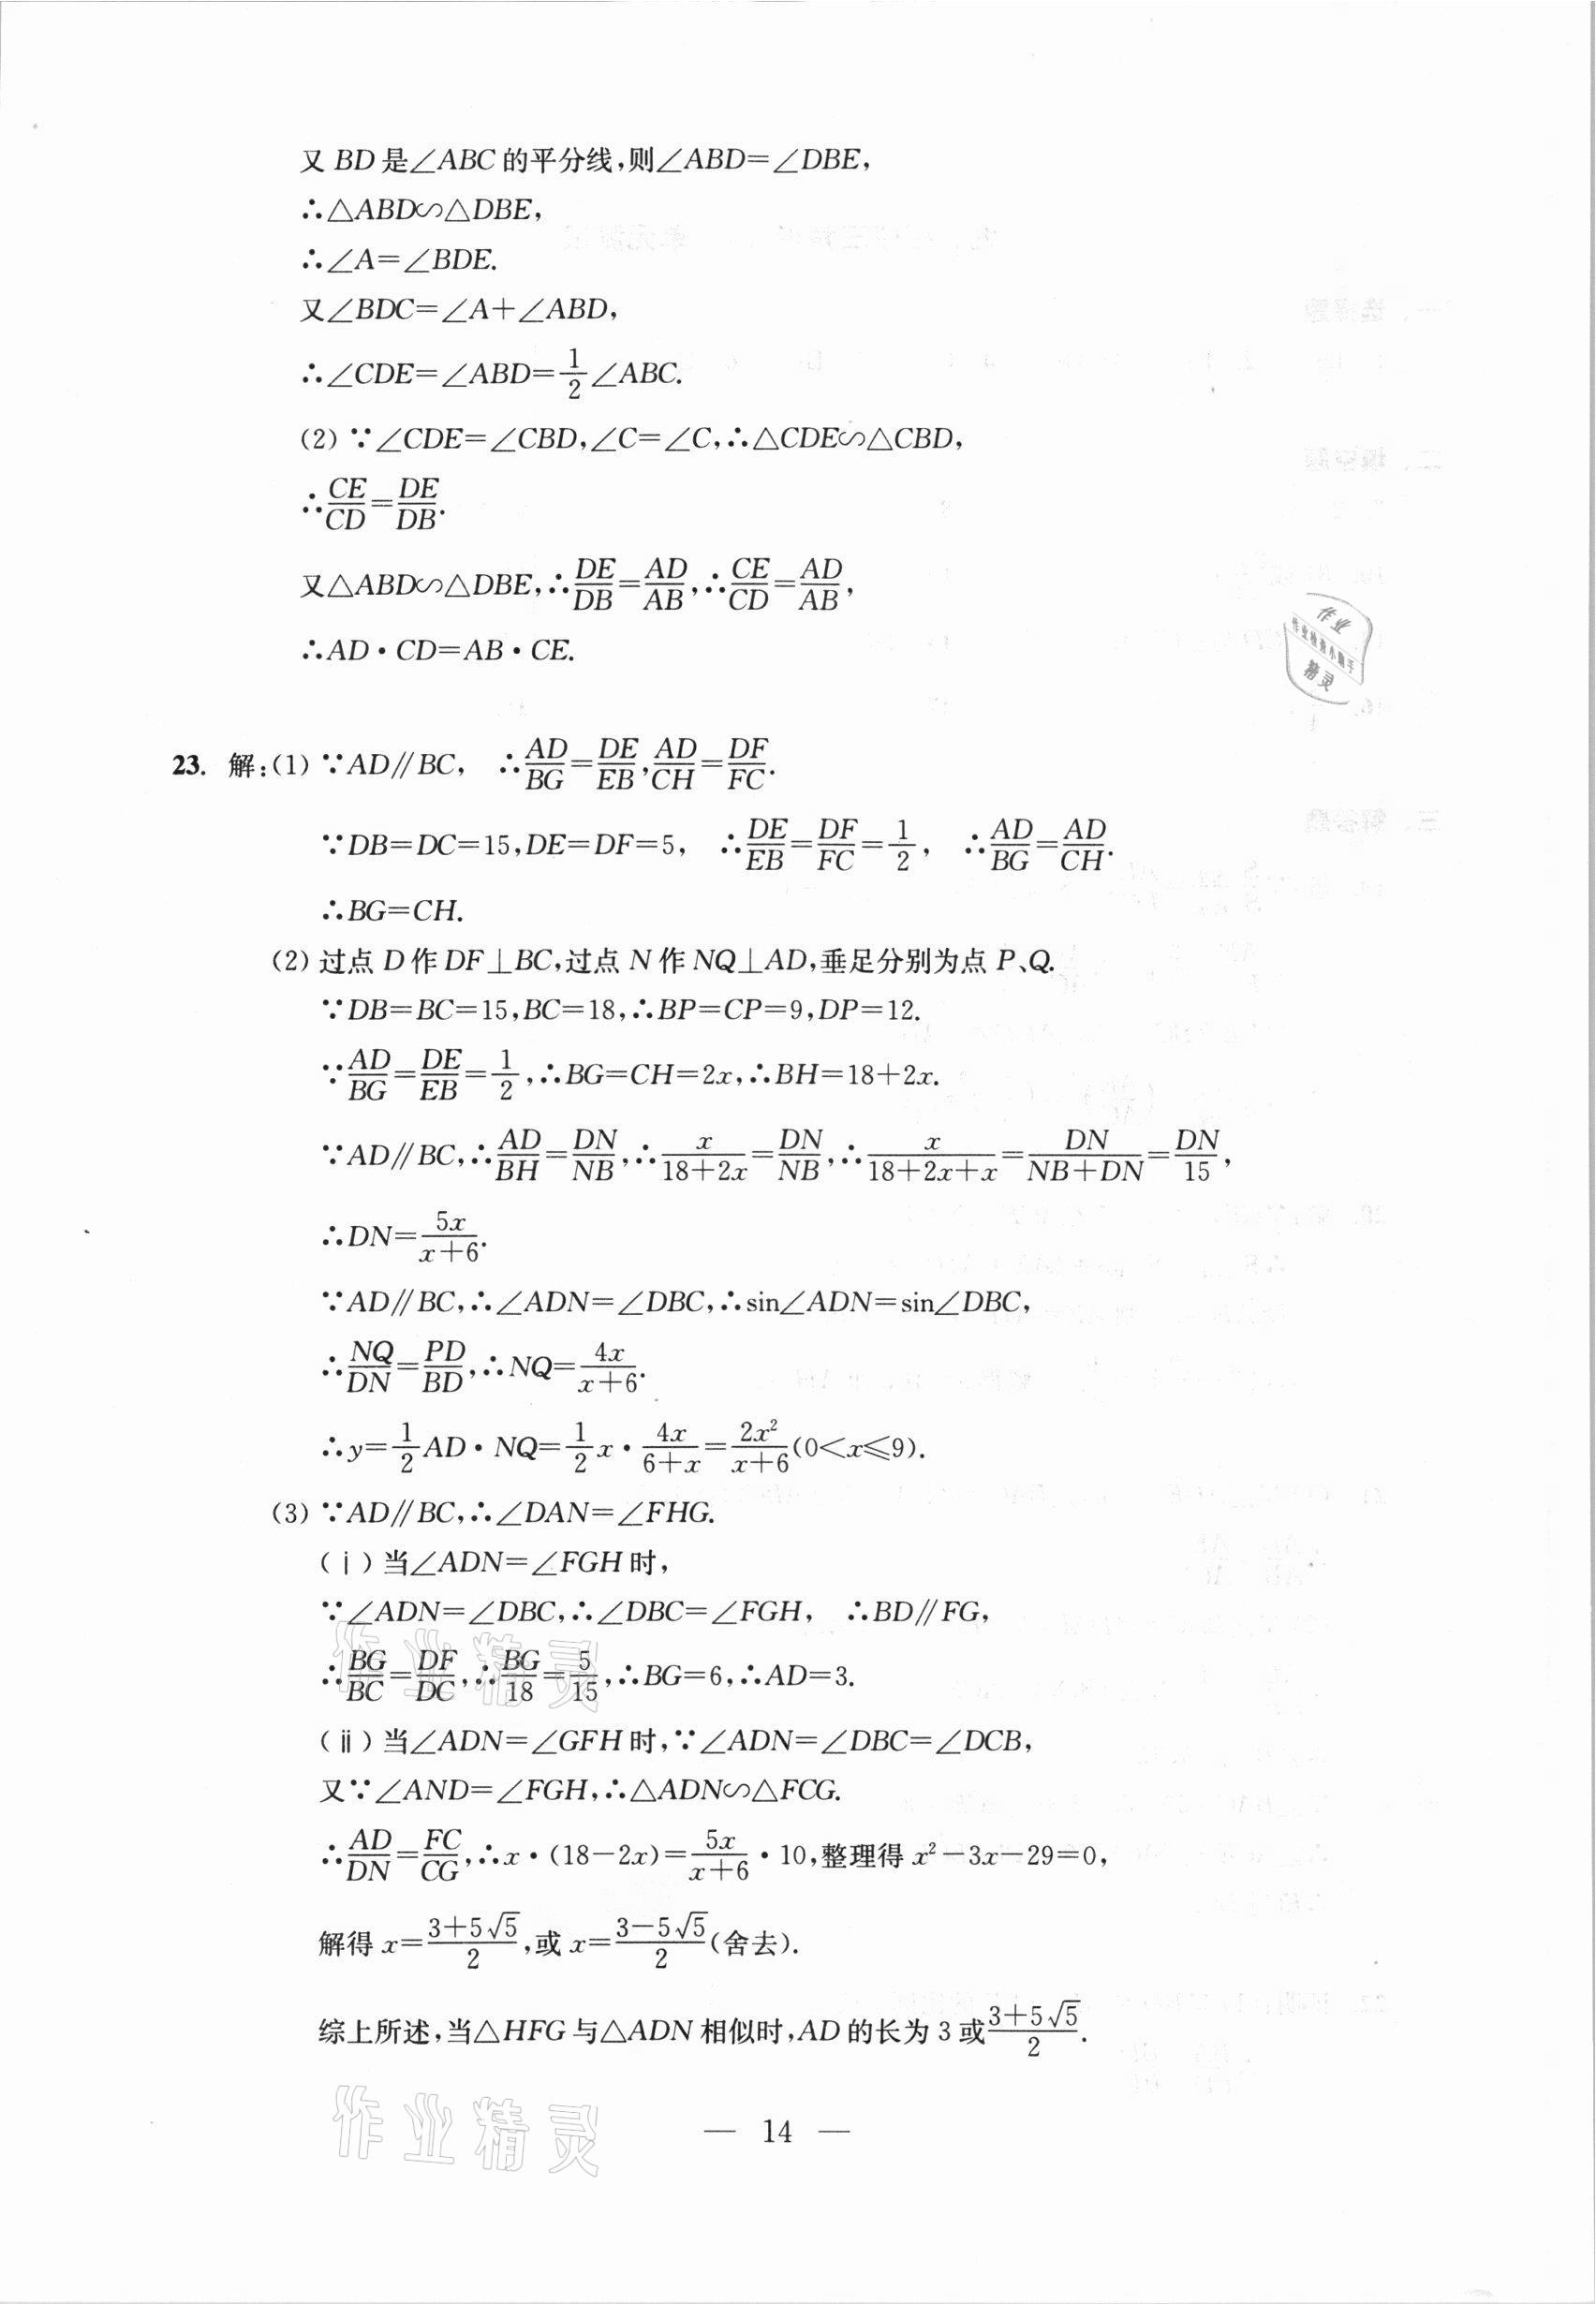 又 BD 是∠ABC 的平分线,则∠ABD=∠DBE,
∴△ABD∽△DBE,
∴∠A=∠BDE.
又∠BDC=∠A+∠ABD,
∴∠CDE=∠ABD=1/2∠ABC.
(2) ∵∠CDE=∠CBD,∠C=∠C,∴△CDE∽△CBD,
∴CE/CD=DE/DB.
又△ABD∽△DBE,∴DE/DB=AD/AB,∴CE/CD=AD/AB,
∴AD·CD=AB·CE.
作业
作业检查小助手
精灵
23. 解:(1) ∵AD∥BC, ∴AD/BG=DE/EB,AD/CH=DF/FC.
∵DB=DC=15,DE=DF=5, ∴DE/EB=DF/FC=1/2, ∴AD/BG=AD/CH.
∴BG=CH.
(2) 过点 D 作 DF⊥BC,过点 N 作 NQ⊥AD,垂足分别为点 P、Q.
∵DB=BC=15,BC=18,∴BP=CP=9,DP=12.
∵AD/BG=DE/EB=1/2,∴BG=CH=2x,∴BH=18+2x.
∵AD∥BC,∴AD/BH=DN/NB,∴x/(18+2x)=DN/NB,∴x/(18+2x+x)=DN/(NB+DN)=DN/15,
∴DN=5x/(x+6).
∵AD∥BC,∴∠ADN=∠DBC,∴sin∠ADN=sin∠DBC,
∴NQ/DN=PD/BD,∴NQ=4x/(x+6).
∴y=1/2AD·NQ=1/2x·4x/(6+x)=2x²/(x+6)(0<x≤9).
(3) ∵AD∥BC,∴∠DAN=∠FHG.
(ⅰ) 当∠ADN=∠FGH 时,
∵∠ADN=∠DBC,∴∠DBC=∠FGH, ∴BD∥FG,
∴BG/BC=DF/DC,∴BG/18=5/15,∴BG=6,∴AD=3.
作业精灵
(ⅱ) 当∠ADN=∠GFH 时,∵∠ADN=∠DBC=∠DCB,
又∵∠AND=∠FGH,∴△ADN∽△FCG.
∴AD/DN=FC/CG,∴x·(18-2x)=5x/(x+6)·10,整理得 x²-3x-29=0,
解得 x=(3+5√5)/2,或 x=(3-5√5)/2(舍去).
综上所述,当△HFG 与△ADN 相似时,AD 的长为 3 或(3+5√5)/2.
作业精灵
— 14 —